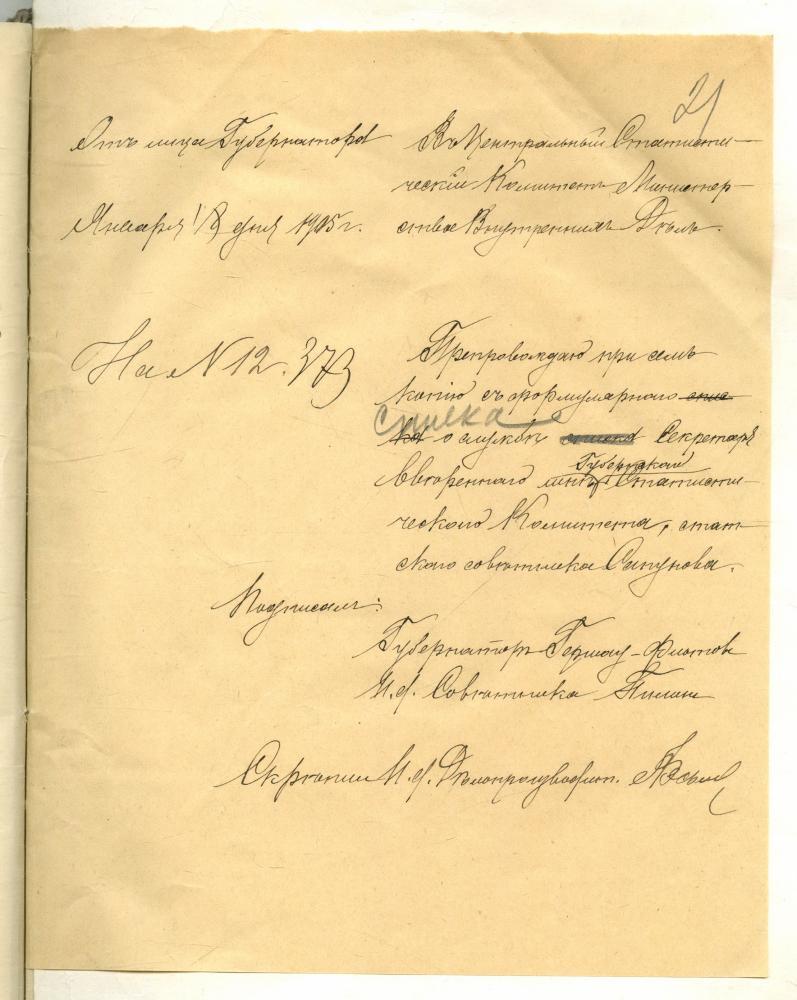 21
Отъ лица Губернатора
Января 18 дня 1905 г.
Въ Центральный Статисти-
ческій Комитетъ Министер-
ства Внутреннихъ Дѣлъ.
На № 12.373
Препровождаю при семъ
копію съ формулярнаго спис
ка списка
о службѣ списка Секретаря
Губернскаго
ввѣреннаго мнѣ Статисти-
ческаго Комитета, стат-
скаго совѣтника Сапунова.
Подписали:
Губернаторъ Гершау-Флотовъ
И. д. Совѣтника
Скрѣпилъ И. д. Дѣлопроизводит.